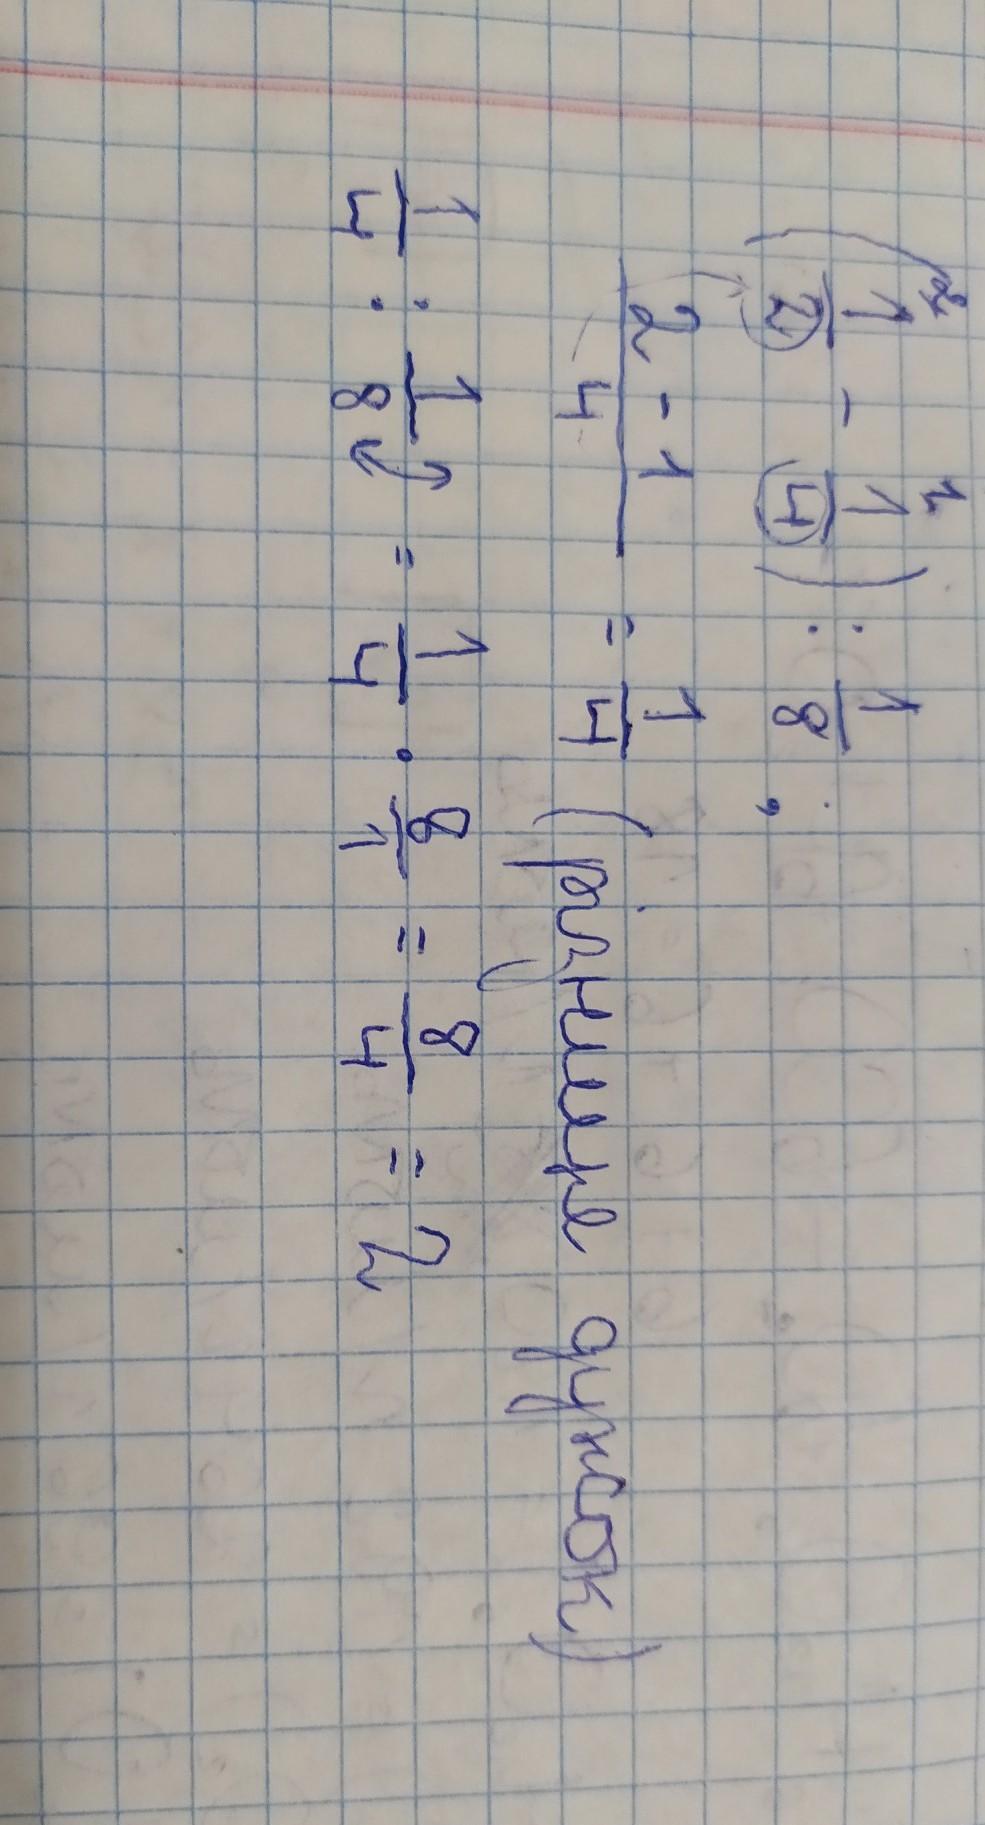 (1/2² - 1/4¹) : 1/8 ;
(2 - 1)/4 = 1/4 (різниця дужок)
1/4 : 1/8 = 1/4 · 8/1 = 8/4 = 2